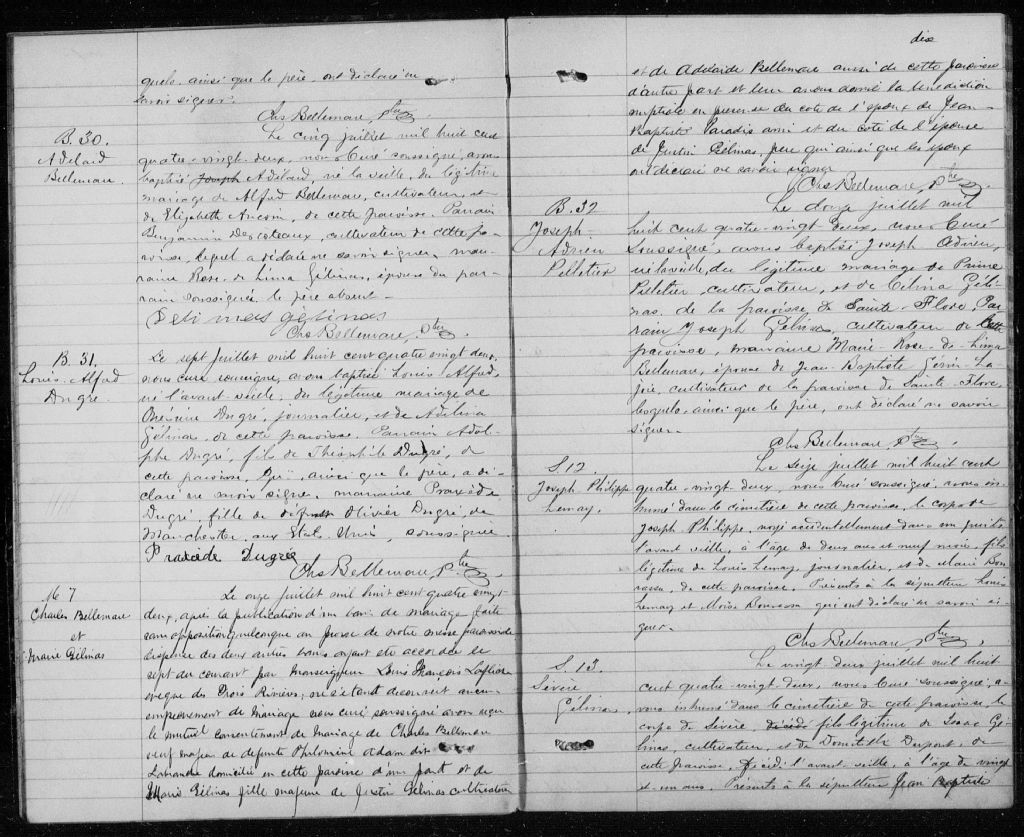 quels ainsi que le père ont déclaré ne
savoir signer.
Chs Bellemare, Ptre
B. 30.
Adélard
Bellemare.
Le cinq juillet mil huit cent
quatre-vingt-deux, nous Curé soussigné, avons
baptisé Joseph Adélard, né la veille, du légitime
mariage de Alfred Bellemare, cultivateur, et
de Elizabeth de cette paroisse. Parrain
Benjamin Descoteaux, cultivateur de cette pa-
roisse, lequel a déclaré ne savoir signer, mar-
raine Rose de Lima Gélinas, épouse du par-
rain soussignée le père absent.
Delimas gelinas
Chs Bellemare, Ptre
B. 31.
Louis-Alfred
Dugré.
Le sept juillet mil huit cent quatre vingt deux,
nous curé soussigné, avons baptisé Louis Alfred,
né l'avant veille, du légitime mariage de
Onésime Dugré, journalier, et de Adélina
Gélinas, de cette paroisse. Parrain Adol-
phe Dugré, fils de Théophile Dugré, de
cette paroisse, qui, ainsi que le père, a dé-
claré ne savoir signer, marraine Praxède
Dugré, fille de défunt Olivier Dugré, de
Manchester, aux Etats Unis, soussignée
Praxède Dugré
Chs Bellemare, Ptre
M 7
Charles Bellemare
et
Marie Gélinas
Le onze juillet mil huit cent quatre vingt
deux, après la publication d'un ban de mariage faite
sans opposition quelconque au prône de notre messe paroissiale
dispense des deux autres bans ayant été accordée le
sept du courant par Monseigneur Louis François Laflèche
évêque des Trois Rivières; ne s'étant découvert aucun
empêchement de mariage nous curé soussigné avons reçu
le mutuel consentement de mariage de Charles Bellemare
veuf majeur de défunte Philomène Adam dit
Labranche domicilié en cette paroisse d'une part et de
Marie Gélinas fille majeure de Justin Gélinas cultivateur
dix
et de Adélaïde Bellemare aussi de cette paroisse
d'autre part et leur avons donné la bénédiction
nuptiale en présence du côté de l'époux de Jean-
Baptiste Paradis ami et du côté de l'épouse
de Justin Gélinas, père qui ainsi que les époux
ont déclaré ne savoir signer
Chs Bellemare, Ptre
B. 32
Joseph-
Adrien
Pelletier
Le douze juillet mil
huit cent quatre-vingt deux, nous Curé
soussigné, avons baptisé Joseph Adrien,
né la veille, du légitime mariage de Prime
Pelletier, cultivateur, et de Célina Géli-
nas, de la paroisse de Sainte-Flore. Par-
rain Joseph Gélinas, cultivateur de cette
paroisse, marraine Marie-Rose-de-Lima
Bellemare, épouse de Jean-Baptiste Gérin-La-
joie, cultivateur de la paroisse de Sainte-Flore
lesquels ainsi que le père, ont déclaré ne savoir
signer.
Chs Bellemare, Ptre
S. 12.
Joseph Philippe
Lemay.
Le seize juillet mil huit cent
quatre-vingt-deux, nous Curé soussigné, avons in-
humé dans le cimetière de cette paroisse, le corps de
Joseph Philippe, noyé accidentellement dans un puits
l'avant veille, à l'âge de deux ans et neuf mois, fils
légitime de Louis Lemay, journalier, et de Marie Bou-
rassa, de cette paroisse. Présents à la sépulture Louis
Lemay et Moïse Bourassa qui ont déclaré ne savoir si-
gner.
Chs Bellemare, Ptre
S. 13.
Sévère
Gélinas.
Le vingt deux juillet mil huit
cent quatre-vingt-deux, nous Curé soussigné, a-
vons inhumé dans le cimetière de cette paroisse, le
corps de Sévère, décédé fils légitime de Isaac Gé-
linas, cultivateur, et de Domitilde Dupont, de
cette paroisse, décédé l'avant-veille, à l'âge de vingt
et-un ans. Présents à la sépulture Jean Baptiste